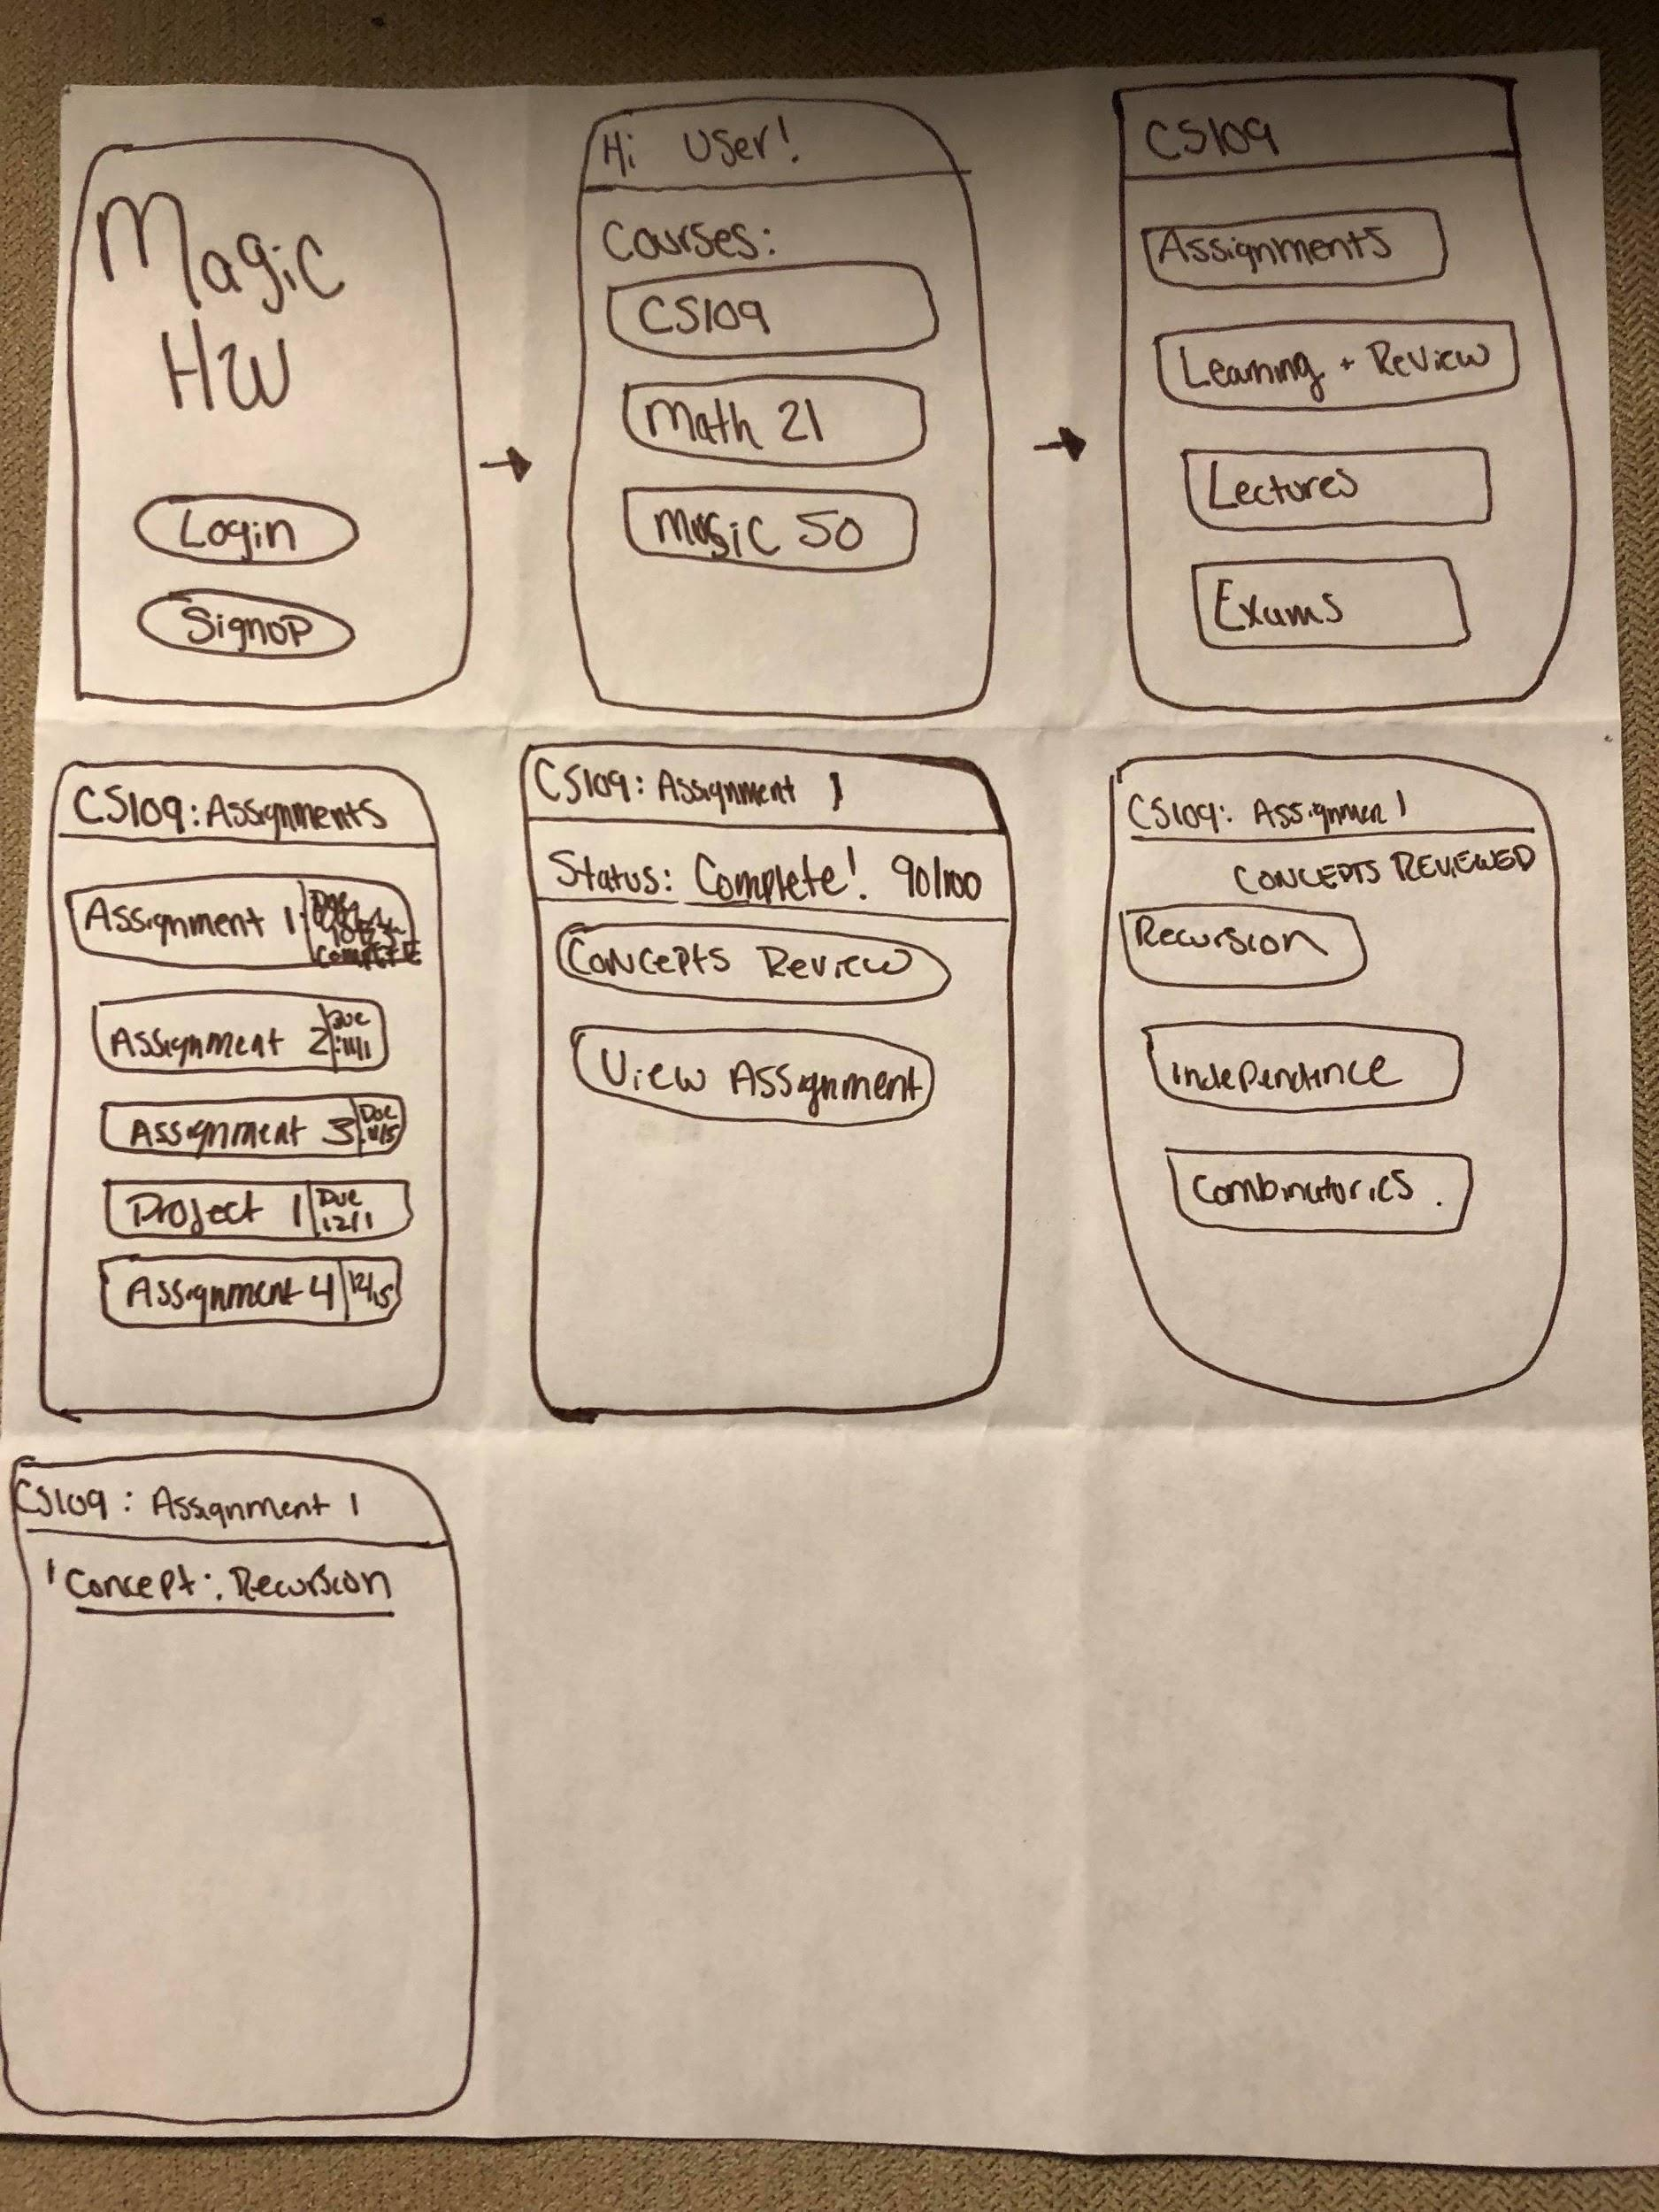 Magic
HW
Login
Signup
Hi User!
Courses:
CS109
Math 21
Music 50
CS109
Assignments
Learning + Review
Lectures
Exams
CS109: Assignments
Assignment 1
Due
COMPLETE
Assignment 2 Due
11/1
Assignment 3 Due
11/15
Project 1 Due
12/1
Assignment 4 12/15
CS109: Assignment 1
Status: Complete! 90/100
Concepts Review
View Assignment
CS109: Assignmen 1
CONCEPTS REVIEWED
Recursion
Independence
Combinatorics.
CS109: Assignment 1
Concept: Recursion